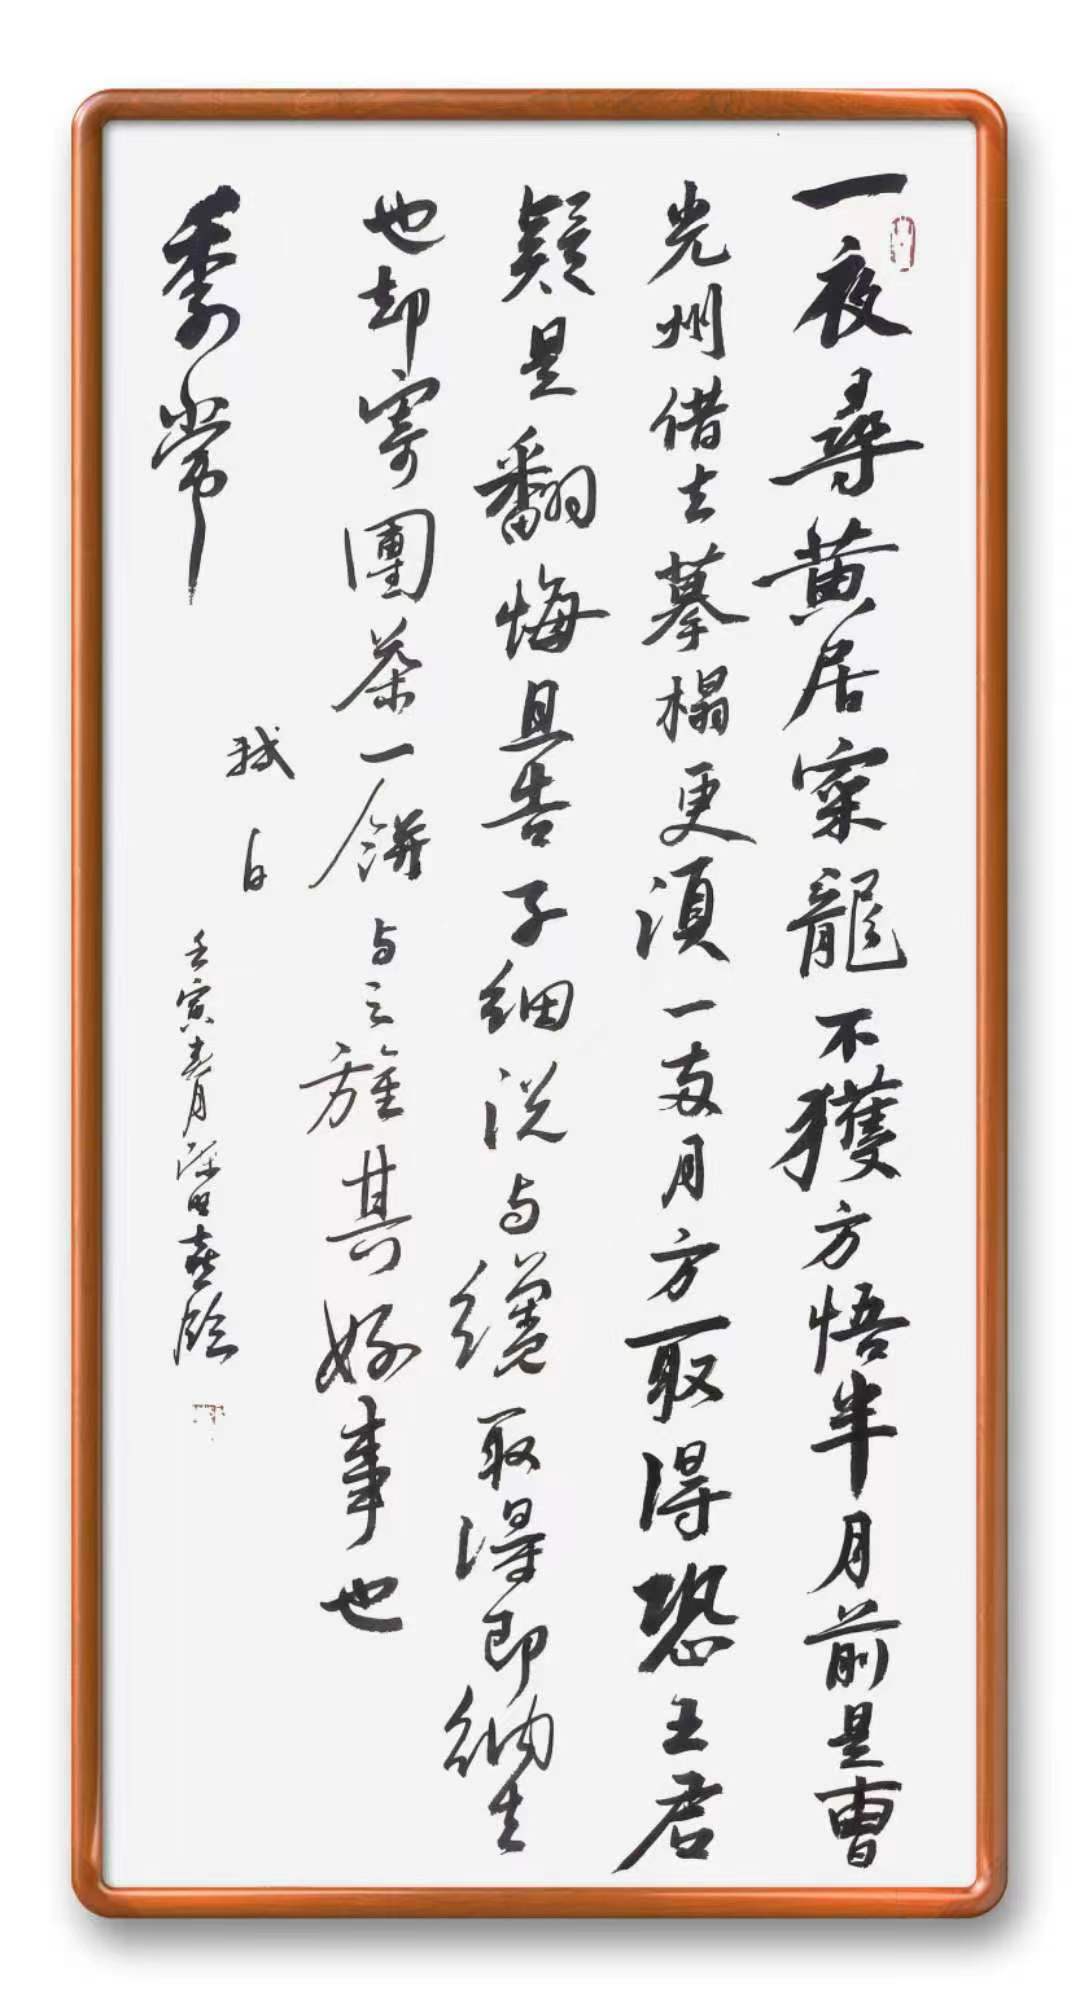 一夜尋黃居寀龍不獲方悟半月前是曹
光州借去摹榻更須一兩月方取得恐王君
疑是翻悔且告子細說与纔取得即納去
也却寄團茶一餅与之旌其好事也
軾白
季常
壬寅春月臨